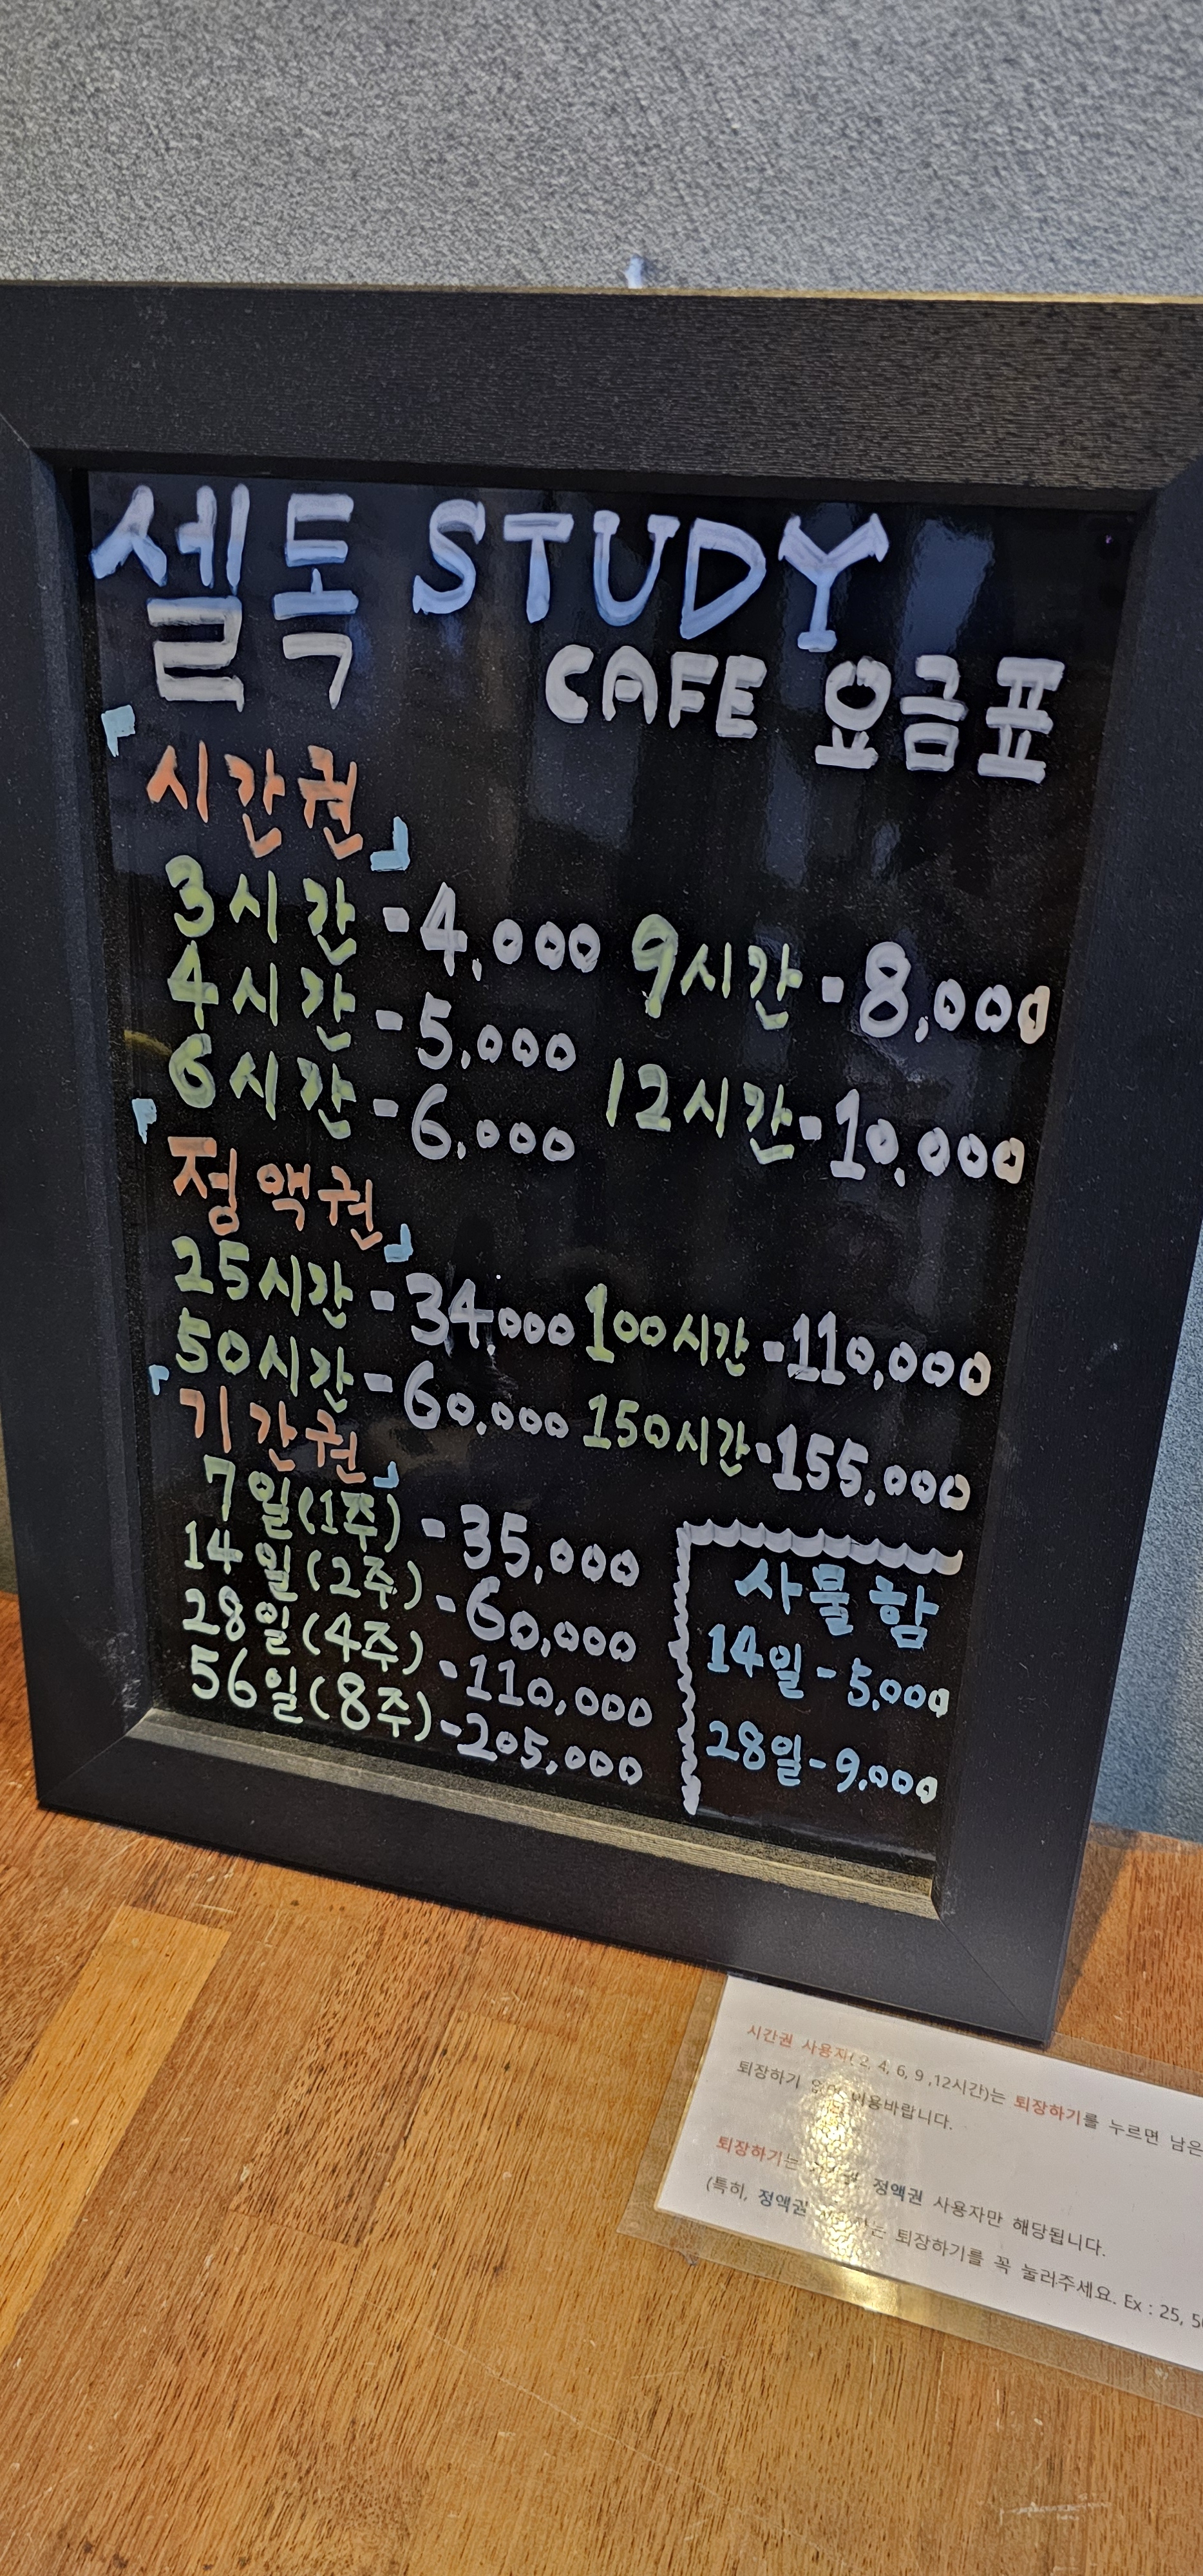 셀독 STUDY
CAFE 요금표
「시간권」
3시간 - 4,000 9시간 - 8,000
4시간 - 5,000
6시간 - 6,000 12시간 - 10,000
「정액권」
25시간 - 34,000 100시간 - 110,000
50시간 - 60,000 150시간 - 155,000
「기간권」
7일(1주) - 35,000
14일(2주) - 60,000
28일(4주) - 110,000
56일(8주) - 205,000
사물함
14일 - 5,000
28일 - 9,000
시간권 사용자( 2, 4, 6, 9 ,12시간)는 퇴장하기를 누르면 남은
퇴장하기 이용바랍니다.
퇴장하기는 정액권 사용자만 해당됩니다.
(특히, 정액권 퇴장하기를 꼭 눌러주세요. Ex : 25,